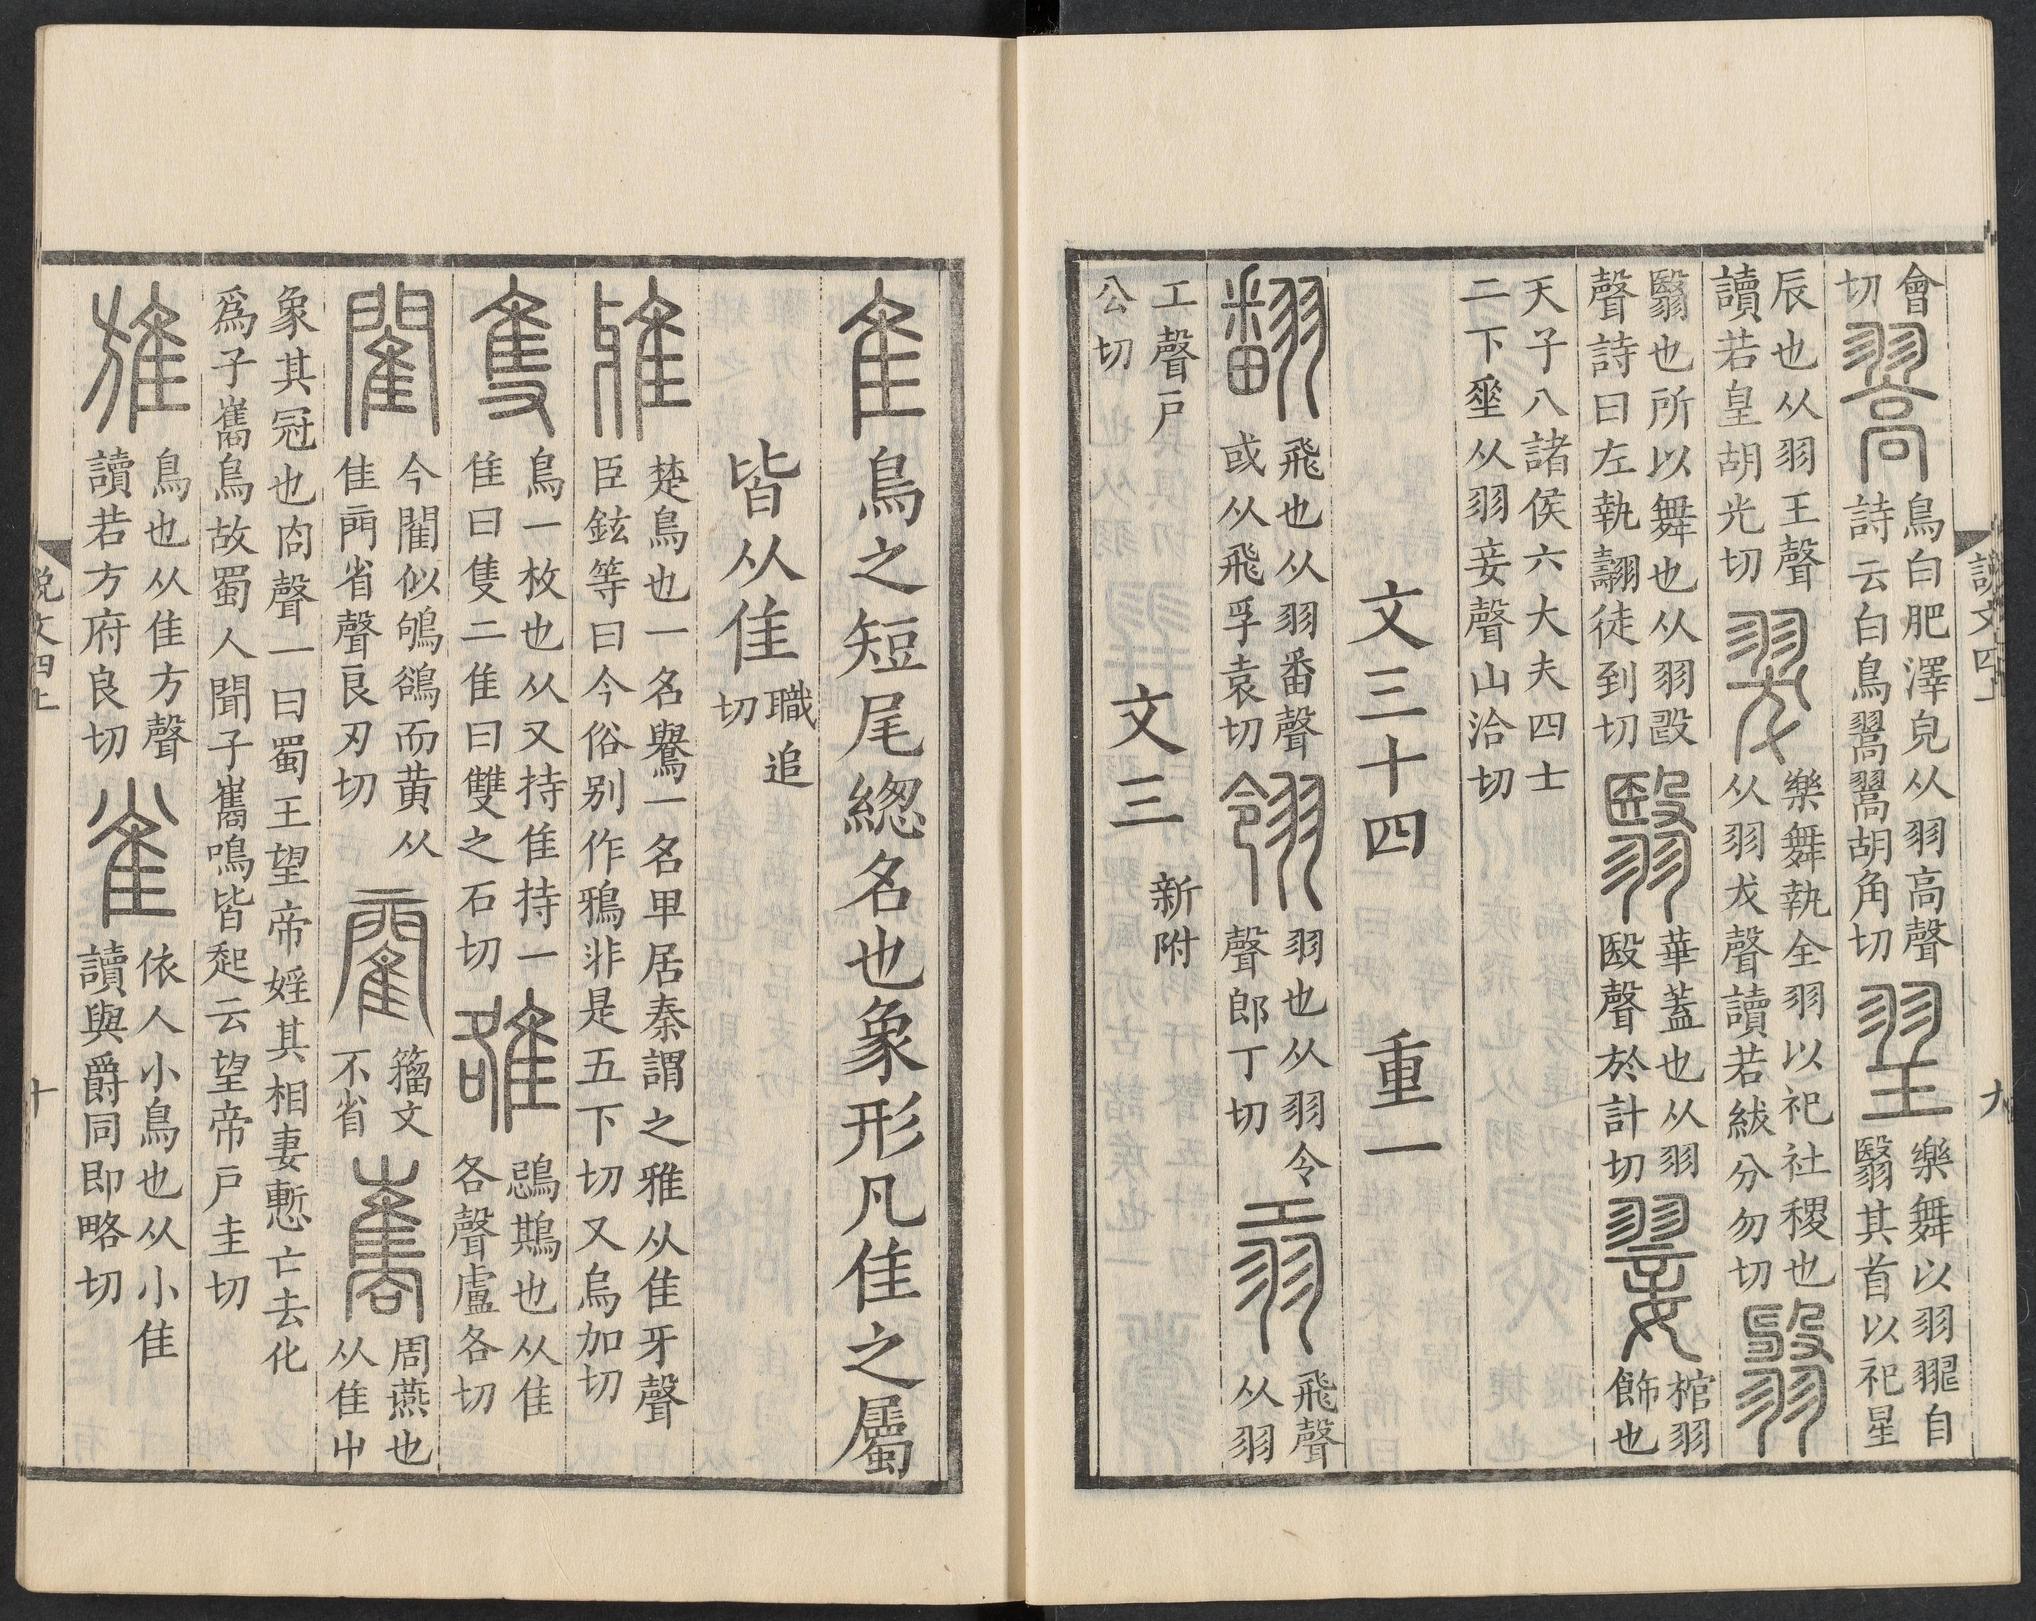 說文四上 九
會切翯鳥白肥澤皃从羽高聲詩云白鳥翯翯胡角切䍿樂舞以羽自翳其首以祀星
辰也从羽王聲讀若皇胡光切翇樂舞執全羽以祀社稷也从羽犮聲讀若紱分勿切
翳也所以舞也从羽聲詩曰左執翿徒到切翳華蓋也从羽殹聲於計切翣棺羽飾也
天子八諸侯六大夫四士二下垂从羽妾聲山洽切
文三十四 重一
翻飛也从羽番聲或从飛孚袁切翎羽也从羽令聲郎丁切翃飛聲从羽
工聲戶公切 文三 新附
隹鳥之短尾緫名也象形凡隹之屬
皆从隹職追切
雅楚鳥也一名鸒一名卑居秦謂之雅从隹牙聲臣鉉等曰今俗别作鴉非是五下切又烏加切
隻鳥一枚也从又持隹持一隹曰隻二隹曰雙之石切雒鵋䳢也从隹各聲盧各切
閵今閵似鴝鵒而黄从隹䦕省聲良刃切𨷲籒文不省巂周燕也从隹屮
象其冠也㕯聲一曰蜀王望帝婬其相妻慙亡去化爲子巂鳥故蜀人聞子巂鳴皆起云望帝戶圭切
䧸鳥也从隹方聲讀若方府良切雀依人小鳥也从小隹讀與爵同即略切
說文四上 十